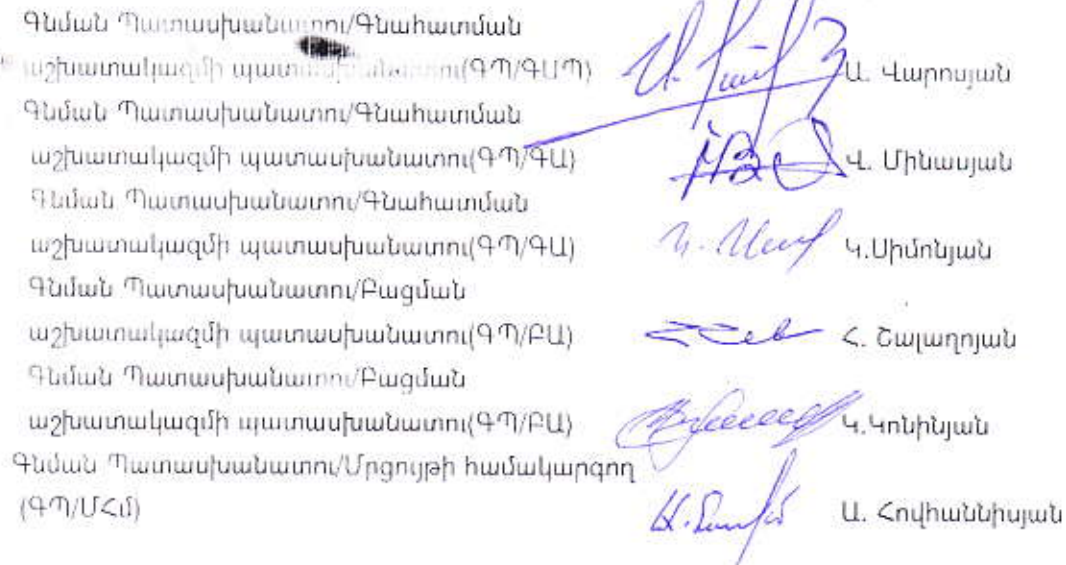 Գնման Պատասխանատու/Գնահատման
աշխատակազմի պատասխանատու(ԳՊ/ԳԱՊ) Ա. Վարոսյան
Գնման Պատասխանատու/Գնահատման
աշխատակազմի պատասխանատու(ԳՊ/ԳԱ) Վ. Մինասյան
Գնման Պատասխանատու/Գնահատման
աշխատակազմի պատասխանատու(ԳՊ/ԳԱ) Կ.Սիմոնյան
Գնման Պատասխանատու/Բացման
աշխատակազմի պատասխանատու(ԳՊ/ԲԱ) Հ. Շալաղոյան
Գնման Պատասխանատու/Բացման
աշխատակազմի պատասխանատու(ԳՊ/ԲԱ) Կ.Կոնինյան
Գնման Պատասխանատու/Մրցույթի համակարգող
(ԳՊ/ՄՀմ) Ա. Հովհաննիսյան